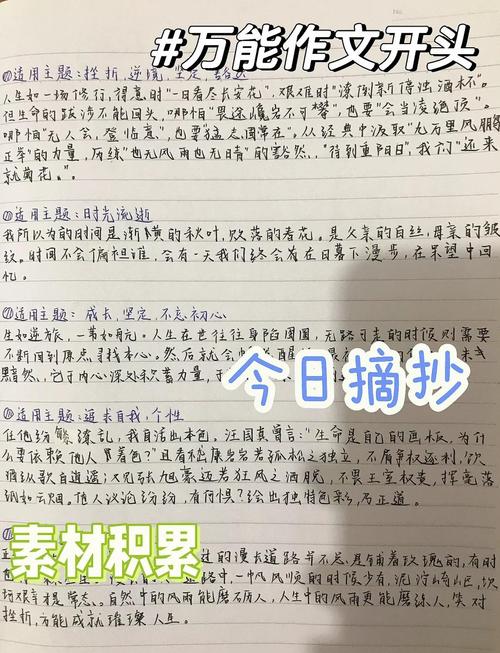 #万能作文开头
适用主题:挫折,逆境,坚定,豁达
人生如一场修行,得意时"一日看尽长安花",艰难时"潦倒新停浊酒杯"。
但生命的跋涉不能回头,哪怕"畏途巉岩不可攀",也要"会当凌绝顶"。
哪怕"无人会,登临意",也要猛志固常在",从经典中汲取"九万里风鹏
正举"的力量,历练"也无风雨也无晴"的豁然,"待到重阳日",我们"还来
就菊花"。
适用主题:时光流逝
我所以为的时间是渐黄的秋叶,败落的春花。是父亲的白丝,母亲的皱
纹。时间不会偏袒谁,会有一天我们终会在日暮下漫步,在呆望中回
忆。
适用主题:成长,坚定,不忘初心
生如逆旅,一苇如航。人生在世往往身陷囹圄,无路可走的时候则需要
不断回到原点寻找本心。然后就会
黯然,它于内心深处积蓄力量,于
今日摘抄
适用主题:追求自我,个性
任他纷繁缭乱,我自活出本色。汪国真曾言:"生命是自己的画板,为什
么要依赖他人着色?"且看嵇康岩岩若孤松之独立,不屑争权逐利,饮
酒纵歌自逍遥;又见张旭豪迈若狂风之洒脱,不畏王室权贵,挥毫落
纸如云烟。他人议论纷纷,有何惧?绘出独特色彩,乃正道。
素材积累
的漫长道路并不总是铺着玫瑰的,有时
中,一帆风顺的时候少有,泥泞
坎坷艰辛才是常态。自然中的风雨能磨石历人,人生中的风雨更能磨练人,笑对
挫折,方能成就璀璨人生。